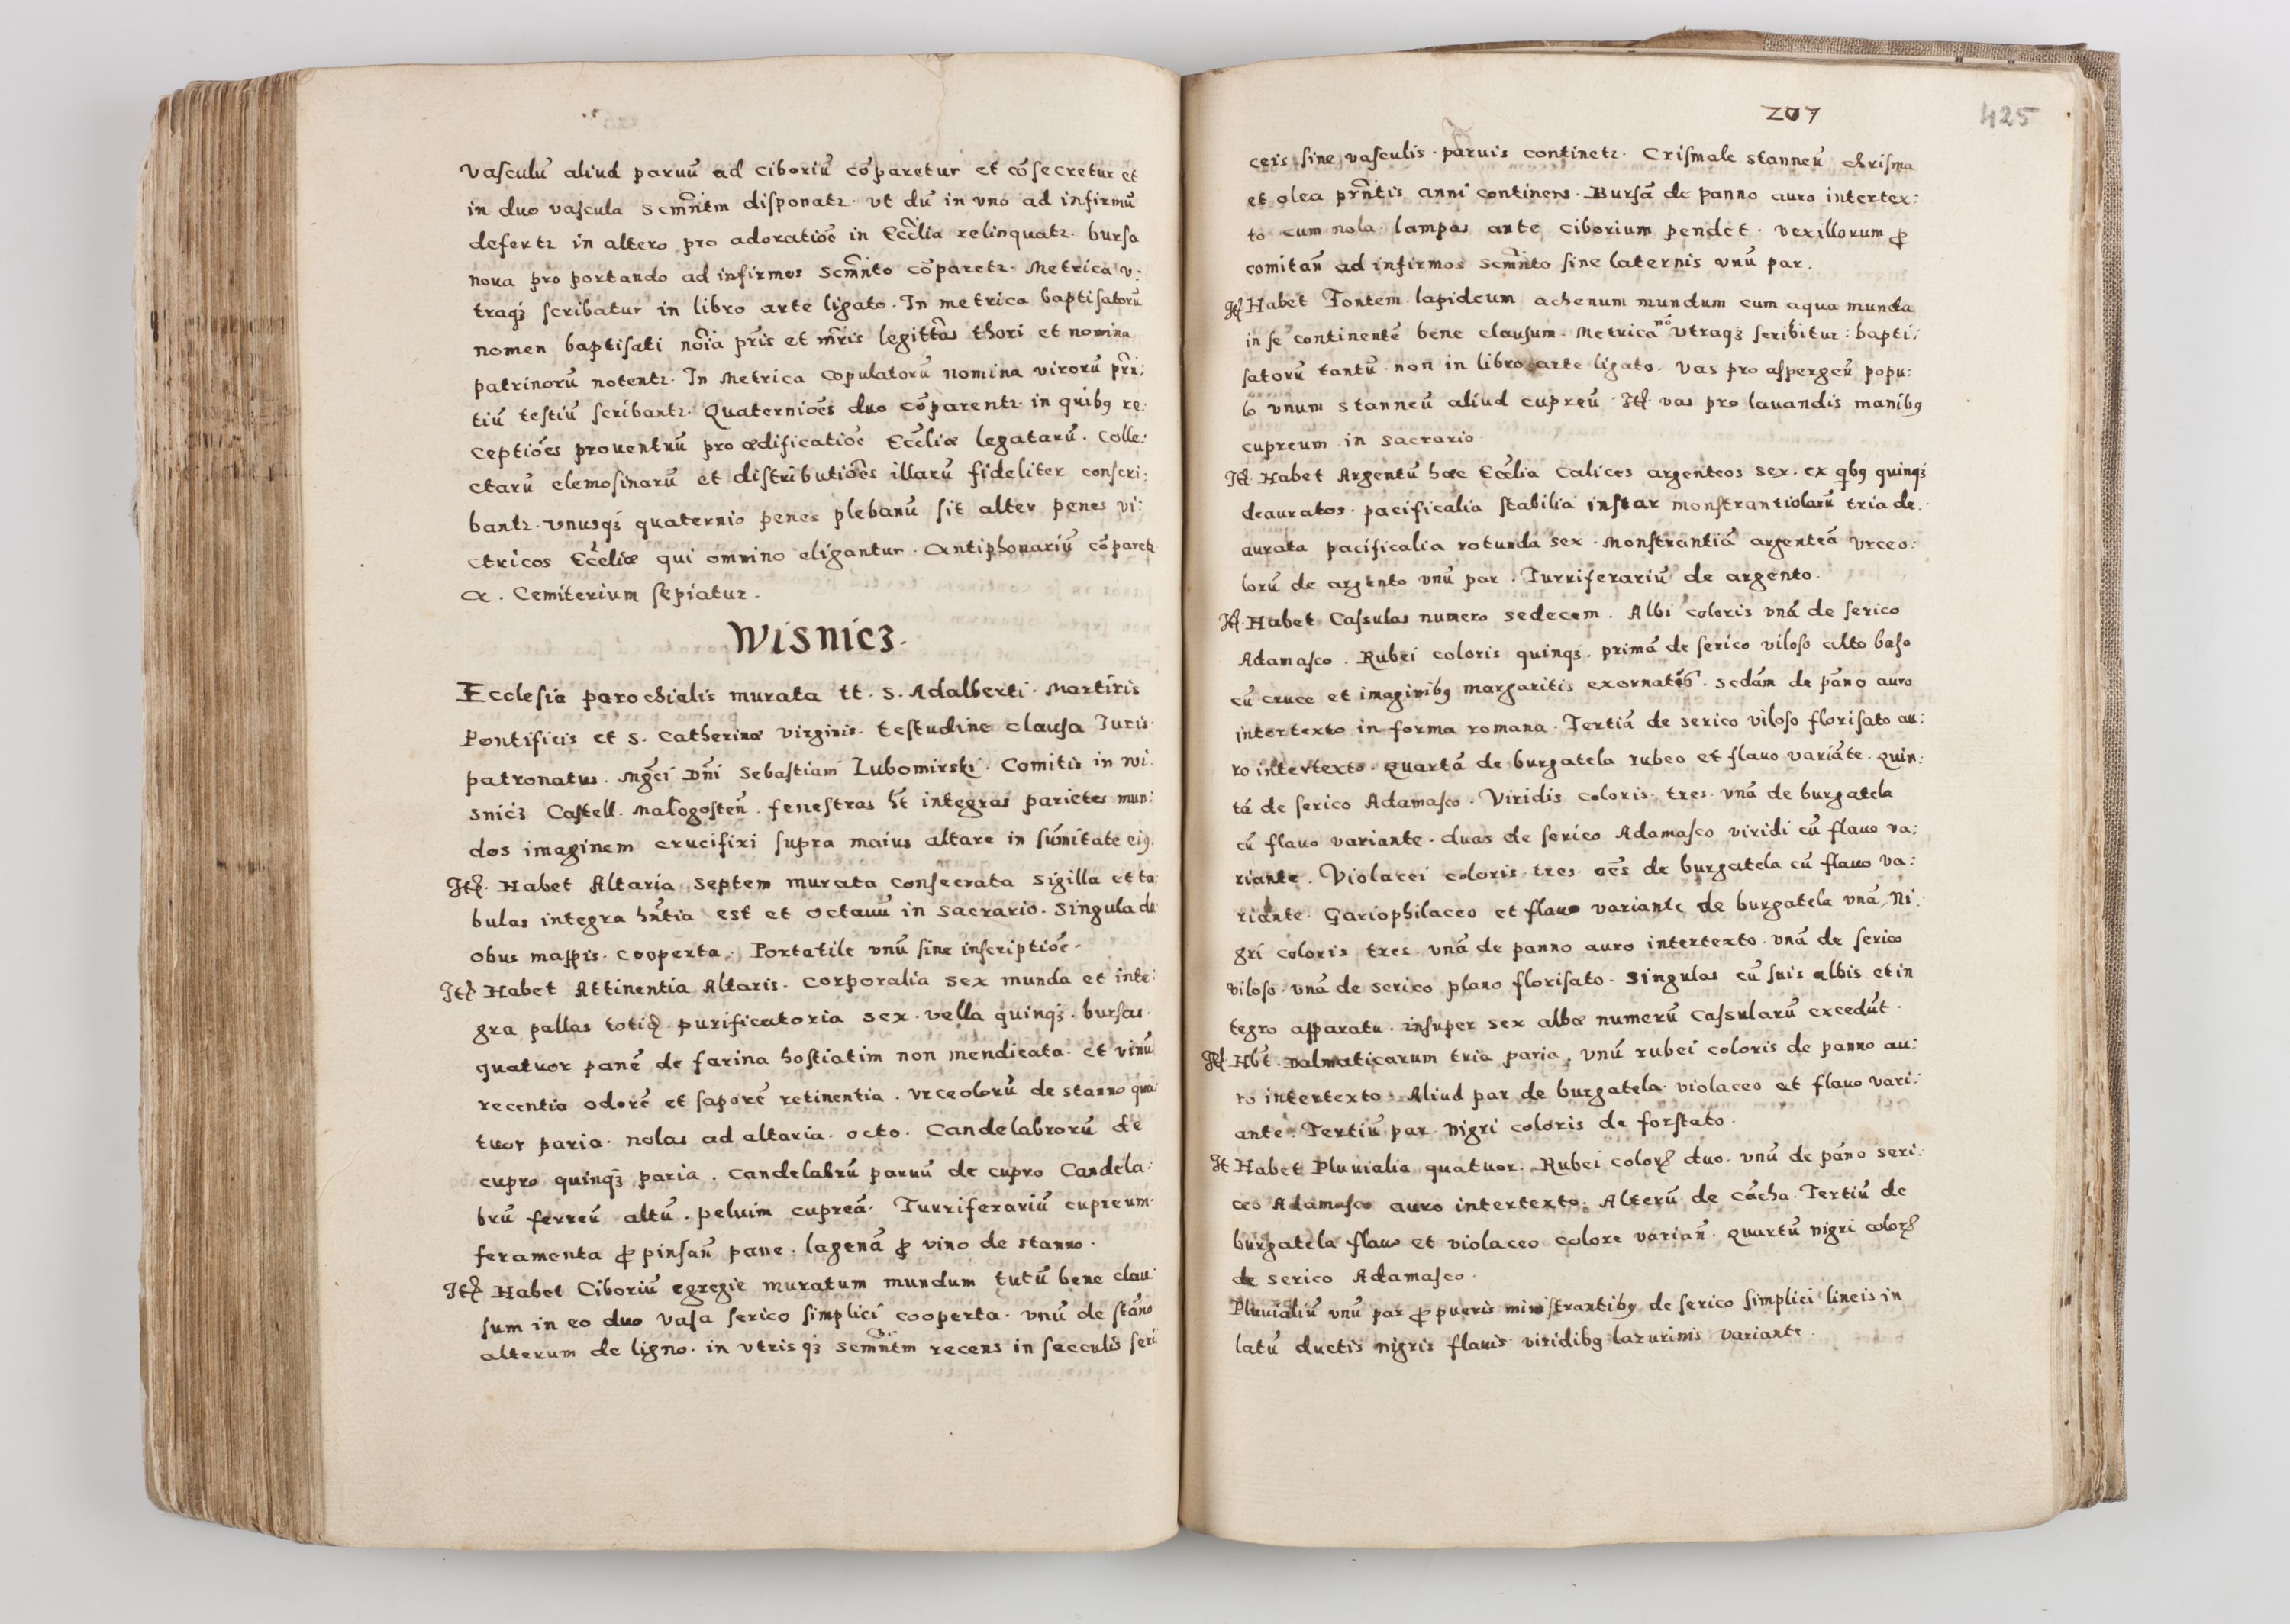 vasculū aliud paruū ad ciboriū cōparetur et cōsecretur et
in duo vascula scm̄ntm disponatr. vt dū in vno ad infirmū
defertr in altero pro adoratiōe in Eccl̄ia relinquatr. bursa
noua pro portando ad infirmos scm̄nto cōparetr. Metrica v:
traqz scribatur in libro arte ligato. In metrica baptisatorū
nomen baptisati nōia pr̄is et mr̄is legitt̄as thori et nomina
patrinorū notentr. In Metrica copulatorū nomina virorū pr̄n:
tiū testiū scribantr. Quaterniōes duo cōparentr. in quibꝰ re:
ceptiōes prouentuū pro ædificatiōe Eccl̄iæ legatarū. Colle:
ctarū elemosinarū et distributiōes illarū fideliter conscri:
bantr. vnusqz quaternio penes plebanū sit alter penes vi:
ctricos Eccl̄iæ qui omnino eligantur. Antiphonariū cōparetr
α. Cemiterium sepiatur.
Wisnicz.
Ecclesia parochialis murata tt. S. Adalberti. Martiris
Pontificis et S. Catherinæ virginis. testudine clausa Juris
patronatus. Mgc̄i Dn̄i Sebastiani Lubomirski. Comitis in Wi:
snicz Castell. Malogosten̄. fenestras ht̄ integras parietes mun:
dos imaginem crucifixi supra maius altare in sūmitate eiꝰ.
Itꝭ. Habet Altaria septem murata consecrata sigilla et ta:
bulas integra hn̄tia est et octauū in sacrario. Singula du
obus mappis. cooperta. Portatile vnū sine inscriptiōe.
Itꝭ Habet Attinentia Altaris. Corporalia sex munda et inte:
gra pallas totiđ. purificatoria sex. vella quinqz. bursas.
quatuor panē de farina hostiatim non mendicata. et vinū
recentia odorē et saporē retinentia. vrceolorū de stanno qua:
tuor paria. nolas ad altaria. octo. Candelabrorū de
cupro quinqz paria. Candelabrū paruū de cupro Candela:
brū ferreū altū. peluim cupreā. Turriferariū cupreum.
feramenta ꝓ pinsan̄ pane. lagenā ꝓ vino de stanno.
Itꝭ Habet Ciboriū egregie muratum mundum tutū bene clau:
sum in eo duo vasa serico simplici cooperta. vnū de stāno
alterum de ligno. in vtrisqz scm̄ntm recens in sacculis seri
207
425
ceis sine vasculis. paruis continetr. Crismale stanneū chrisma
et olea prn̄tis anni continens. Bursā de panno auro intertex:
to cum nola. lampas ante ciborium pendet. vexillorum ꝓ
comitan̄ ad infirmos scm̄nto sine laternis vnū par.
Itꝭ Habet Fontem. lapideum achenum mundum cum aqua munda
in se continentē bene clausum. Metrica nō vtraqz scribitur: bapti:
satorū tantū. non in libro arte ligato. Vas pro aspergeū popu:
lo vnum stanneū aliud cupreū. Itꝭ vas pro lauandis manibꝰ
cupreum in sacrario.
Itꝭ. Habet Argentū hæc Eccl̄ia Calices argenteos sex. ex qbꝰ quinqz
deauratos. pacificalia stabilia instar monstrantiolarū tria de.
aurata pacificalia rotunda sex. Monstrantiā argenteā vrceo:
lorū de argento vnū par. Turriferariū de argento.
Itꝭ. Habet Cassulas numero sedecem. Albi coloris vnā de serico
Adamasco. Rubei coloris quinqz. primā de serico viloso alto baso
cū cruce et imaginibꝰ margaritis exornatis. Scdām de pāno auro
intertexto in forma romana. Tertiā de serico viloso florisato au:
ro intertexto. Quartā de burgatela rubeo et flauo variāte. Quin:
tā de serico Adamasco. Viridis coloris. tres. vnā de burgatela
cū flauo variante. duas de serico Adamasco viridi cū flauo va:
riante. Violacei coloris tres. oēs de burgatela cū flauo va:
riante. Gariophilaceo et flauo variante de burgatela vnā. Ni:
gri coloris tres. vnā de panno auro intertexto. vnā de serico
viloso. vnā de serico plano florisato. Singulas cū suis albis et in
tegro apparatu. insuper sex albæ numerū Cassularū excedūt.
Itꝭ Hbt̄. Dalmaticarum tria paria. vnū rubei coloris de panno au:
ro intertexto. Aliud par de burgatela. violaceo et flauo vari:
ante. Tertiū par nigri coloris de forstato.
It Habet Pluuialia quatuor. Rubei colorꝭ duo. vnū de pāno seri:
ceo Adamasco auro intertexto. Alterū de cācha. Tertiū de
burgatela flauo et violaceo colore varian̄. Quartū nigri colorꝭ
de serico Adamasco.
Pluuialiū vnū par ꝓ pueris ministrantibꝰ de serico simplici lineis in
latū ductis nigris flauis viridibꝰ lazurinis variante.